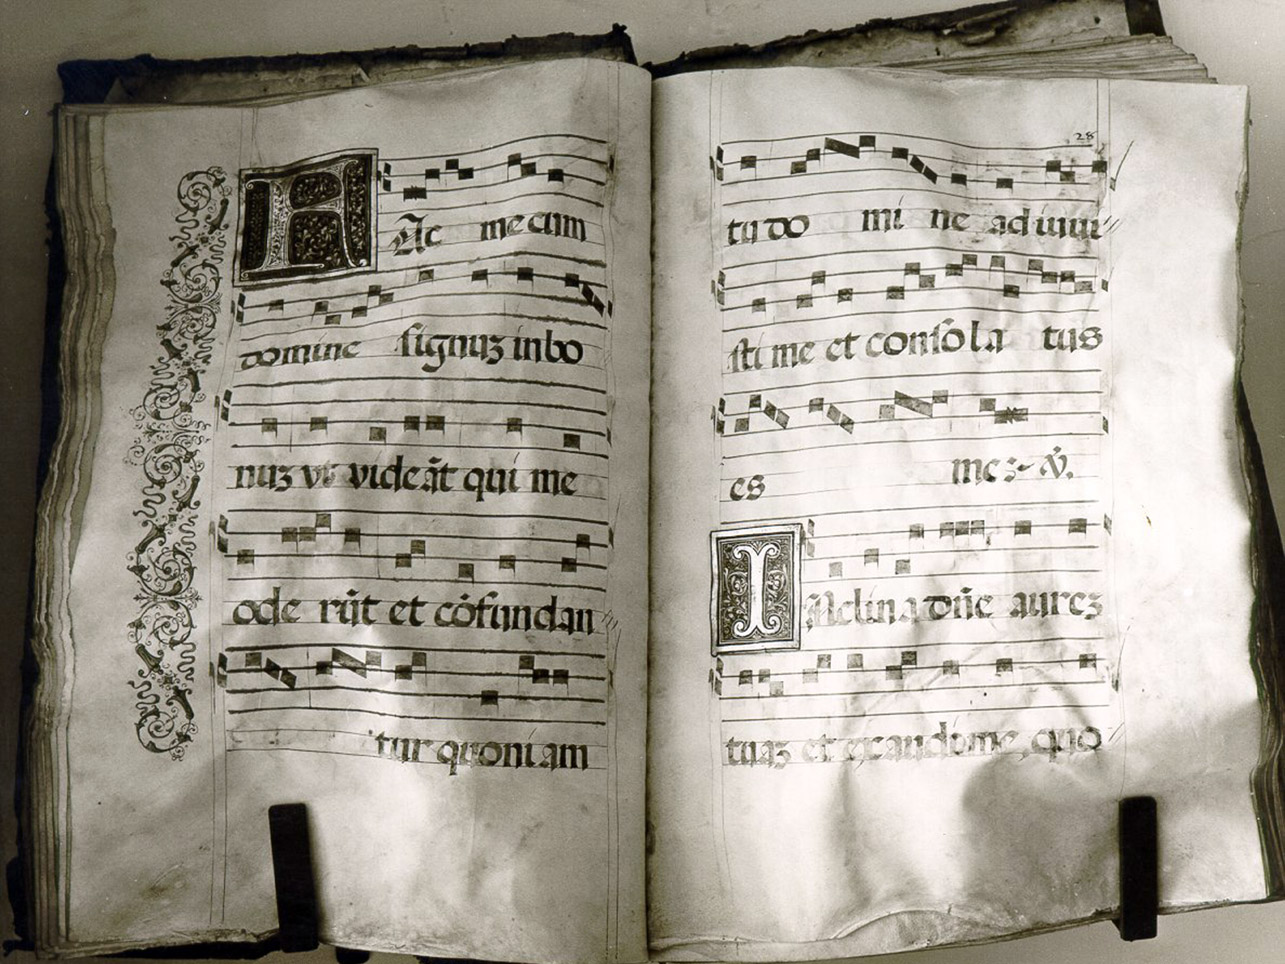 FAc mecum
domine signuz in bo
nuz vt videāt qui me
ode rūt et cōfundan
tur quoniam
28
tu do mi ne ad iuui
sti me et consola tus
es me:- v̄.
INclina dn̄e aurez
tuaz et exaudi me quo